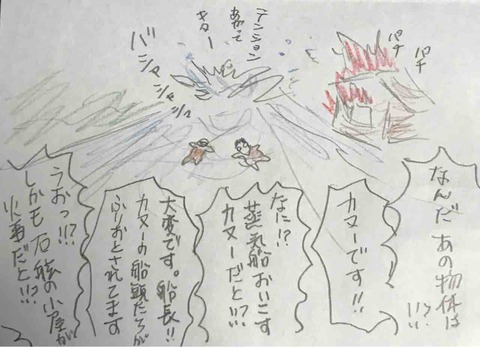 なんだ あの物体は
!?
カヌーです!!
なに!?
蒸気船おいこす
カヌーだと!?
大変です。船長!!
カヌーの船頭たちが
ふりおとされてます
うおっ!?
しかも石鹸の小屋が
火事だと!?
パチ
パチ
テンション
あがって
キター
バシャ
バシャ